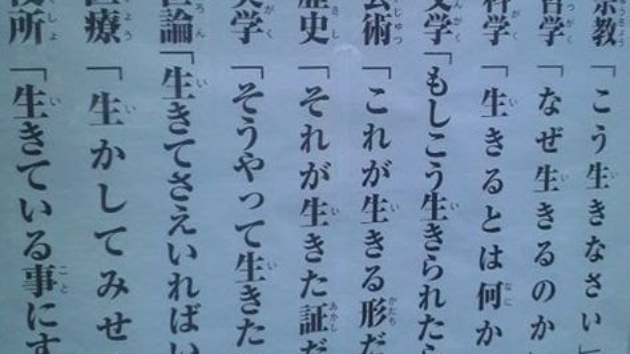 宗教「こう生きなさい」
哲学「なぜ生きるのか
科学「生きるとは何か
文学「もしこう生きられたら
芸術「これが生きる形だ
歴史「それが生きた証だ
学「そうやって生きた
論「生きてさえいればい
医療「生かしてみせ
役所「生きている事にす